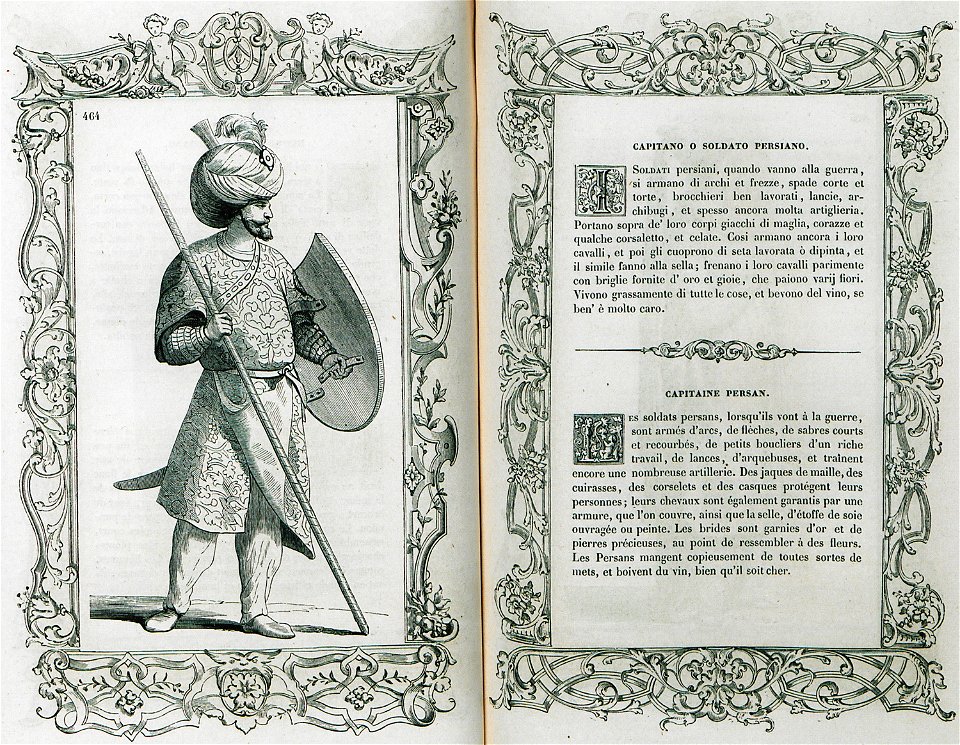 464
CAPITANO O SOLDATO PERSIANO.
I SOLDATI persiani, quando vanno alla guerra,
si armano di archi et frezze, spade corte et
torte, brocchieri ben lavorati, lancie, ar-
chibugi, et spesso ancora molta artiglieria.
Portano sopra de' loro corpi giacchi di maglia, corazze et
qualche corsaletto, et celate. Cosi armano ancora i loro
cavalli, et poi gli cuoprono di seta lavorata ò dipinta, et
il simile fanno alla sella; frenano i loro cavalli parimente
con briglie fornite d' oro et gioie, che paiono varij fiori.
Vivono grassamente di tutte le cose, et bevono del vino, se
ben' è molto caro.
CAPITAINE PERSAN.
LES soldats persans, lorsqu'ils vont à la guerre,
sont armés d'arcs, de flèches, de sabres courts
et recourbés, de petits boucliers d'un riche
travail, de lances, d'arquebuses, et traînent
encore une nombreuse artillerie. Des jaques de maille, des
cuirasses, des corselets et des casques protégent leurs
personnes; leurs chevaux sont également garantis par une
armure, que l'on couvre, ainsi que la selle, d'étoffe de soie
ouvragée ou peinte. Les brides sont garnies d'or et de
pierres précieuses, au point de ressembler à des fleurs.
Les Persans mangent copieusement de toutes sortes de
mets, et boivent du vin, bien qu'il soit cher.